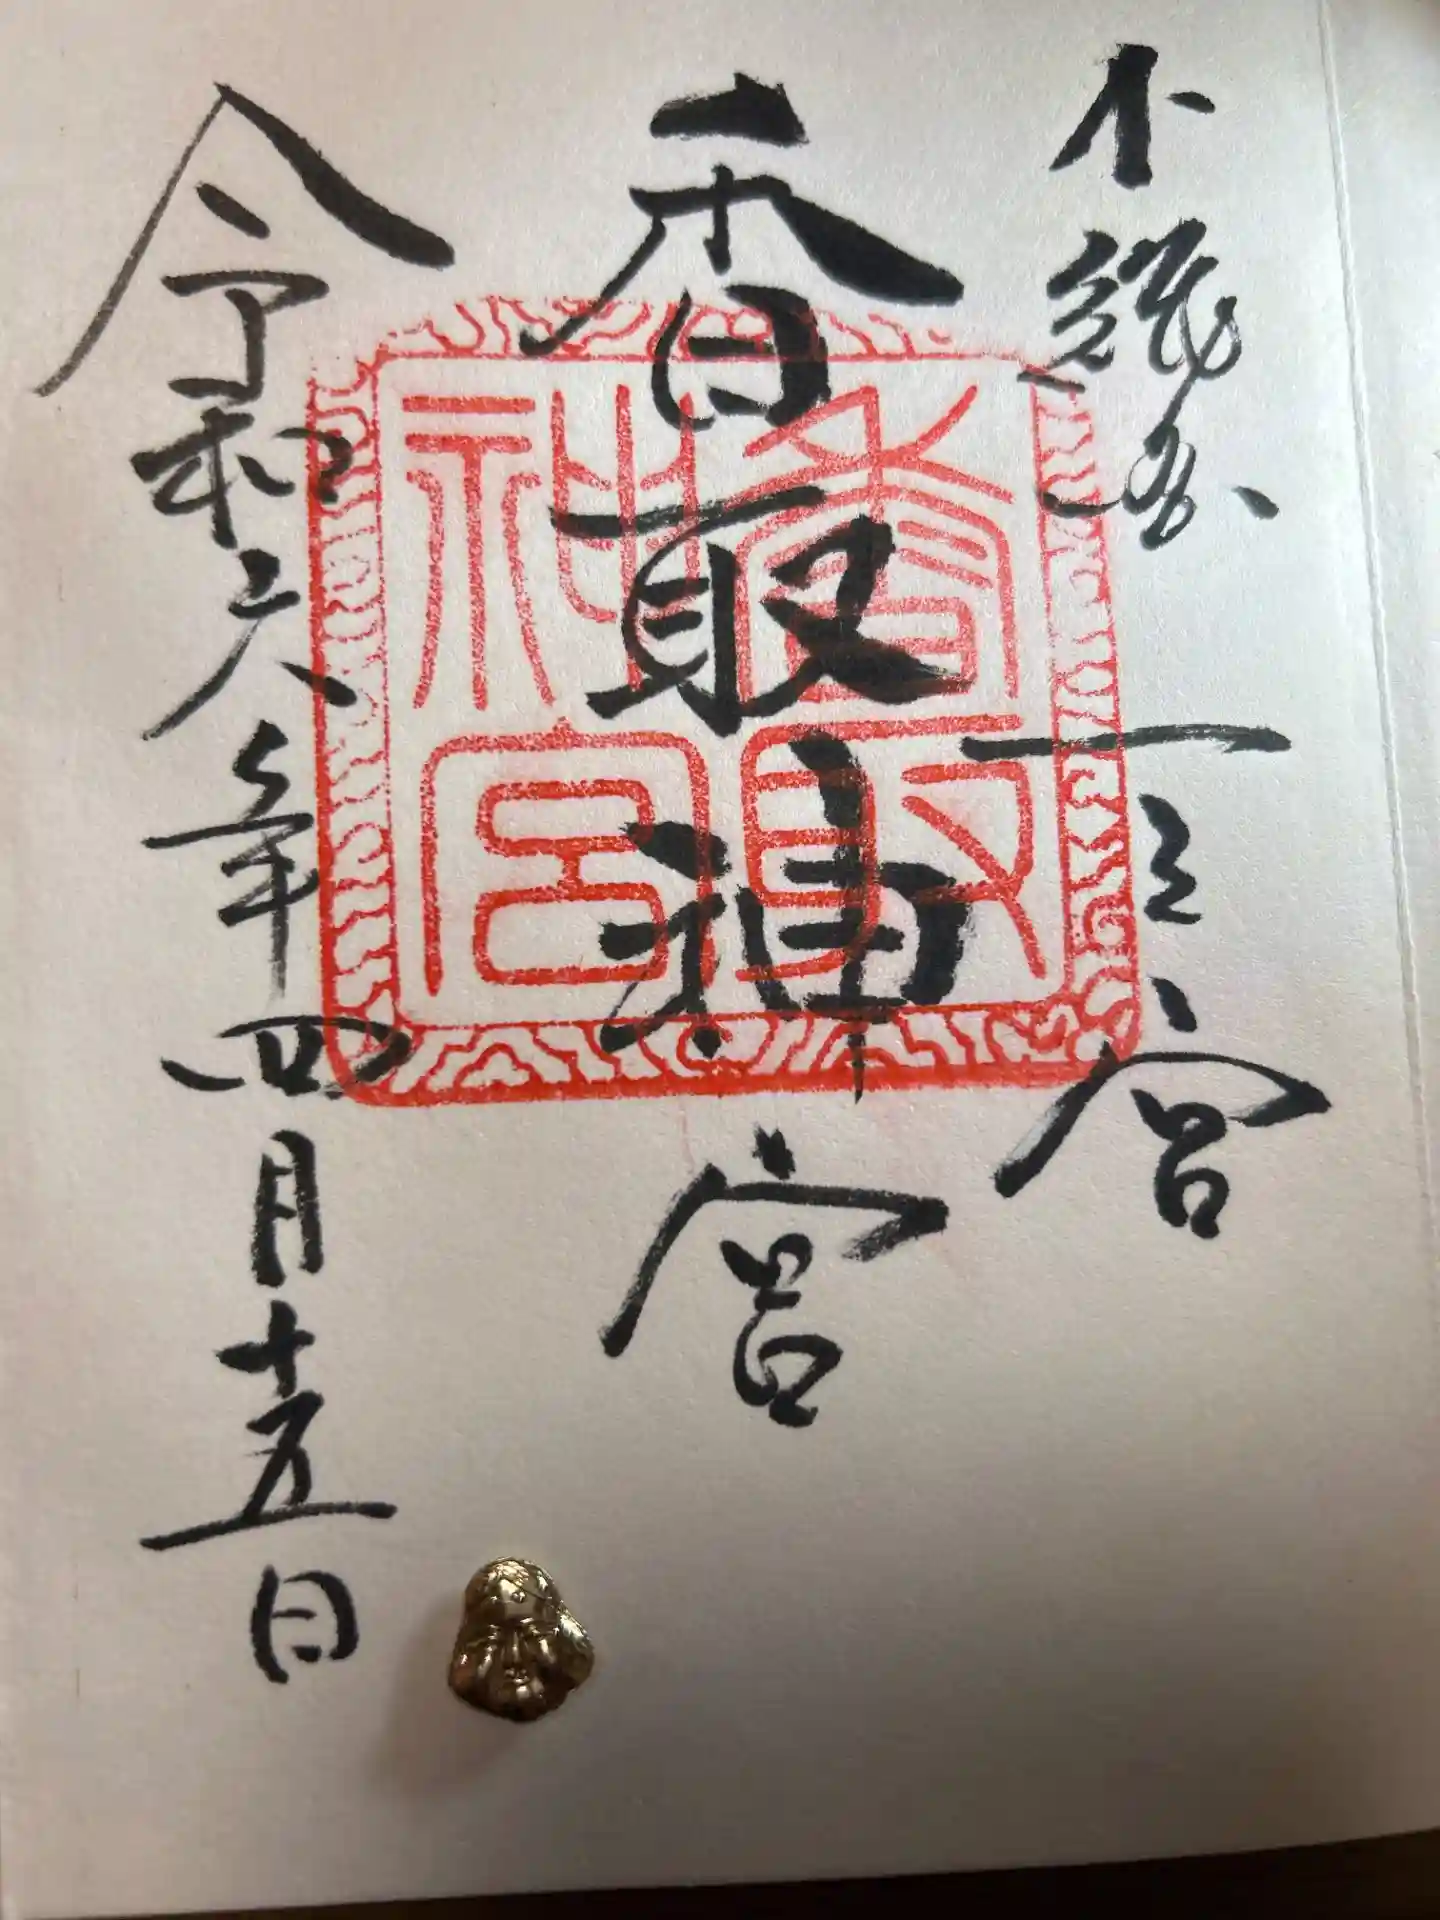 下總國一之宮
香取神宮
香取
神宮
令和六年四月十五日